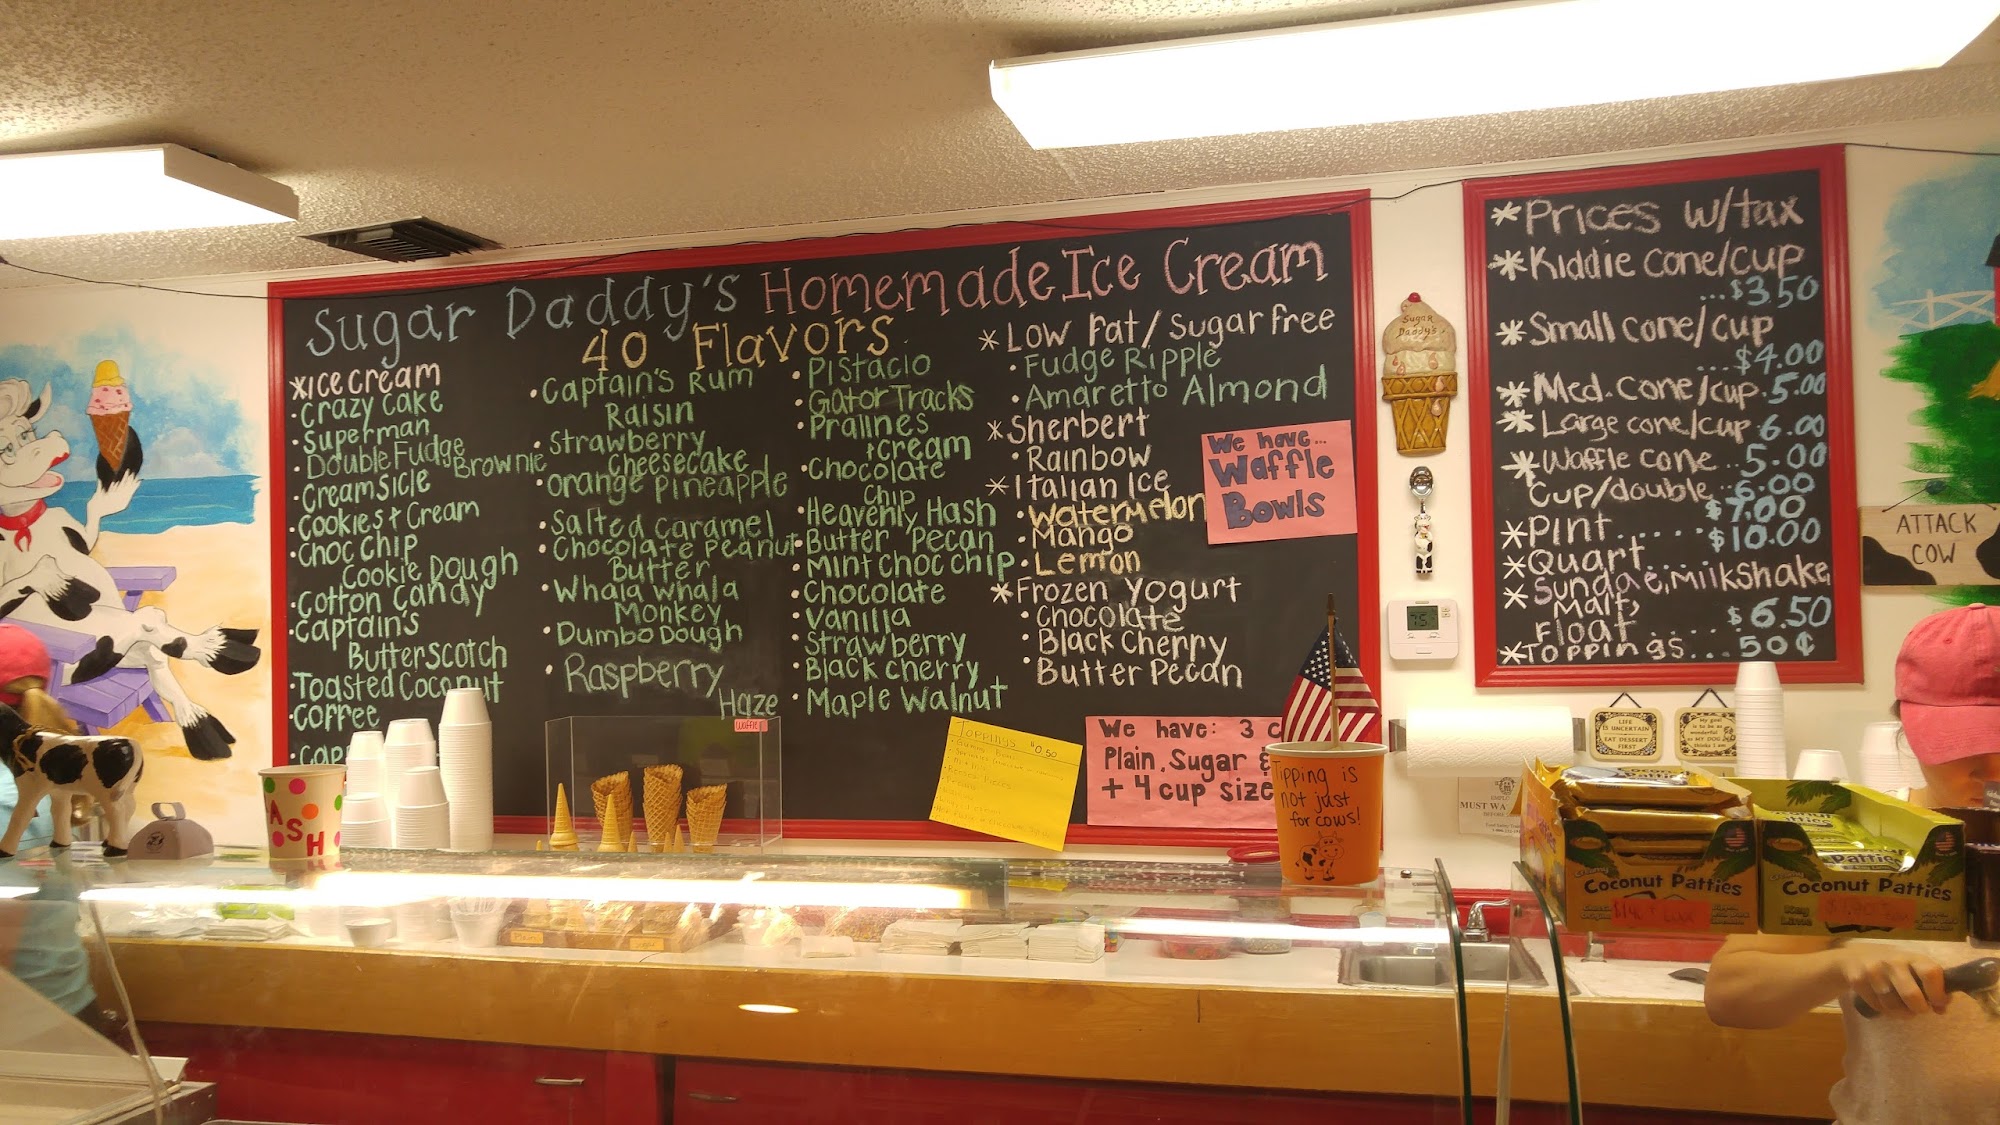 Sugar Daddy's Homemade Ice Cream
40 Flavors
*Ice cream
• Crazy Cake
• Superman
• Double Fudge Brownie
• Creamsicle
• Cookies + Cream
• Choc Chip
Cookie Dough
• Cotton Candy
• Captain's
Butterscotch
• Toasted Coconut
• Coffee
• Cap
• Captain's Rum
Raisin
• Strawberry
Cheesecake
• Orange Pineapple
• Salted Caramel
• Chocolate Peanut
Butter
• Whala Whala
Monkey
• Dumbo Dough
• Raspberry
Haze
• Pistacio
• Gator Tracks
• Pralines
+ Cream
• Chocolate
Chip
• Heavenly Hash
• Butter Pecan
• Mint Choc Chip
• Chocolate
• Vanilla
• Strawberry
• Black Cherry
• Maple Walnut
* Low Fat/Sugar free
• Fudge Ripple
• Amaretto Almond
* Sherbert
• Rainbow
* Italian Ice
• Watermelon
• Mango
• Lemon
* Frozen Yogurt
• Chocolate
• Black Cherry
• Butter Pecan
We have...
Waffle
Bowls
Waffle
Toppings $0.50
We have: 3 c
Plain, Sugar &
+ 4 cup size
Tipping is
not just
for cows!
CASH
Sugar
Daddy's
* Prices w/tax
* Kiddie cone/cup
...$3.50
* Small cone/cup
...$4.00
* Med. cone/cup. 5.00
* Large cone/cup 6.00
* Waffle cone.. 5.00
Cup/double.. 6.00
* Pint..... $7.00
* Quart... $10.00
* Sundae, Milkshake,
Malt,
Float.... $6.50
* Toppings... 50¢
ATTACK
COW
75
LIFE
IS UNCERTAIN
EAT DESSERT
FIRST
My goal
is to be as
wonderful
as MY DOG
thinks I am
MUST WA
Coconut Patties
Coconut Patties
Plain
Sugar